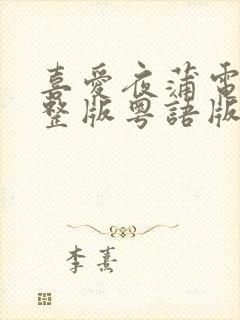 喜愛夜蒲電
整版粵語版
李熹